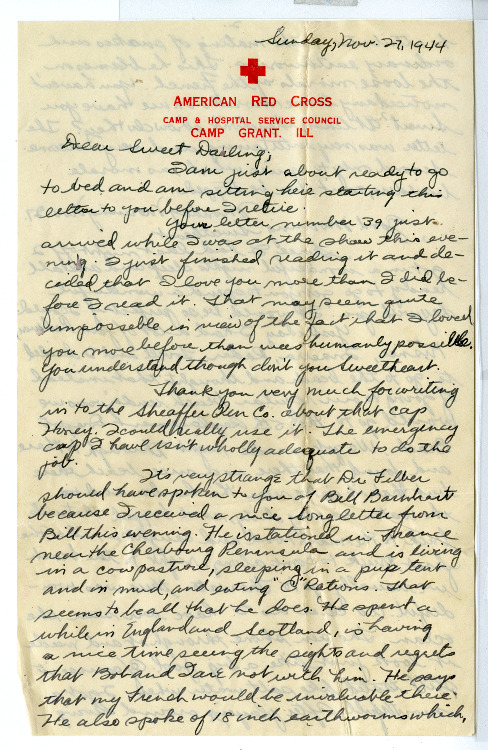 Sunday, Nov. 27, 1944
AMERICAN RED CROSS
CAMP & HOSPITAL SERVICE COUNCIL
CAMP GRANT. ILL
Dear Sweet Darling;
I am just about ready to go
to bed and am sitting here starting this
letter to you before I retire.
Your letter number 39 just
arrived while I was at the show this eve-
ning. I just finished reading it and de-
cided that I love you more than I did be-
fore I read it. That may seem quite
impossible in view of the fact that I loved
you more before than was humanly possible.
You understand though don't you Sweetheart.
Thank you very much for writing
in to the Sheaffer Pen Co. about that cap
Honey. I could really use it. The emergency
cap I have isn't wholly adequate to do the
job.
It's very strange that Dr. Filber
should have spoken to you of Bill Barnhart
because I received a nice long letter from
Bill this evening. He is stationed in France
near the Cherbourg Peninsula and is living
in a cow pasture, sleeping in a pup tent
and in mud, and eating "C" Rations. That
seems to be all that he does. He spent a
while in England and Scotland, is having
a nice time seeing the sights and regrets
that Bob and I are not with him. He says
that my French would be invaluable there.
He also spoke of 18 inch earthworms which,